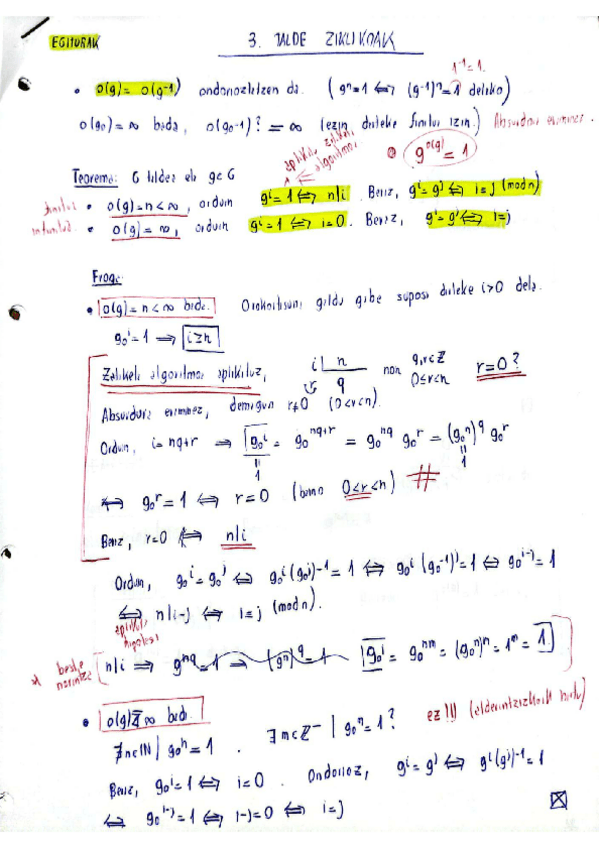 EGITURAK
3. TALDE ZIKLIKOAK
1⁻¹=1.
• o(g)= o(g⁻¹) ondorioztatzen da. (gⁿ=1 ⇔ (g⁻¹)ⁿ=1 delako)
o(g₀)=∞ bada, o(g₀⁻¹)? = ∞ (ezin daiteke finitua izan.) Absurdura eramanez.
g^o(g) = 1
zatiketa algoritmoa
Teorema: G taldea eta g∈G
finitua • o(g)=n<∞, orduan gⁱ=1 ⇔ n|i. Beraz, gⁱ=gʲ ⇔ i≡j (mod n)
• o(g)=∞, orduan gⁱ=1 ⇔ i=0. Beraz, gⁱ=gʲ ⇔ i=j
Froga:
• o(g)=n<∞ bada. Orokortasuna galdu gabe suposa daiteke i>0 dela.
g₀ⁱ=1 ⇒ i≥n
Zatiketa algoritmoa aplikatuz, i | n q non q,r∈Z 0≤r<n r=0?
Absurdura eramanez, demagun r≠0 (0<r<n).
Orduan, i=nq+r ⇒ g₀ⁱ = g₀^(nq+r) = g₀^(nq) g₀^r = (g₀ⁿ)^q g₀^r
= 1 = 1
⇔ g₀^r=1 ⇔ r=0 (baina 0<r<n) #
Beraz, r=0 ⇔ n|i
Orduan, g₀ⁱ=g₀ʲ ⇔ g₀ⁱ(g₀ʲ)⁻¹=1 ⇔ g₀ⁱ(g₀⁻¹)ʲ=1 ⇔ g₀^(i-j)=1
⇔ n|i-j ⇔ i≡j (mod n).
hipotesi
beste norantza n|i ⇒ g^(nq)=1 ⇒ (gⁿ)^q=1 g₀ⁱ = g₀^(nm) = (g₀ⁿ)^m = 1^m = 1
• o(g)=∞ bada.
∄n∈ℕ | g₀ⁿ=1. ∃n∈Z⁻ | g₀ⁿ=1? ez!!!
Beraz, g₀ⁱ=1 ⇔ i=0. Ondorioz, gⁱ=gʲ ⇔ gⁱ(gʲ)⁻¹=1
⇔ g₀^(i-j)=1 ⇔ i-j=0 ⇔ i=j